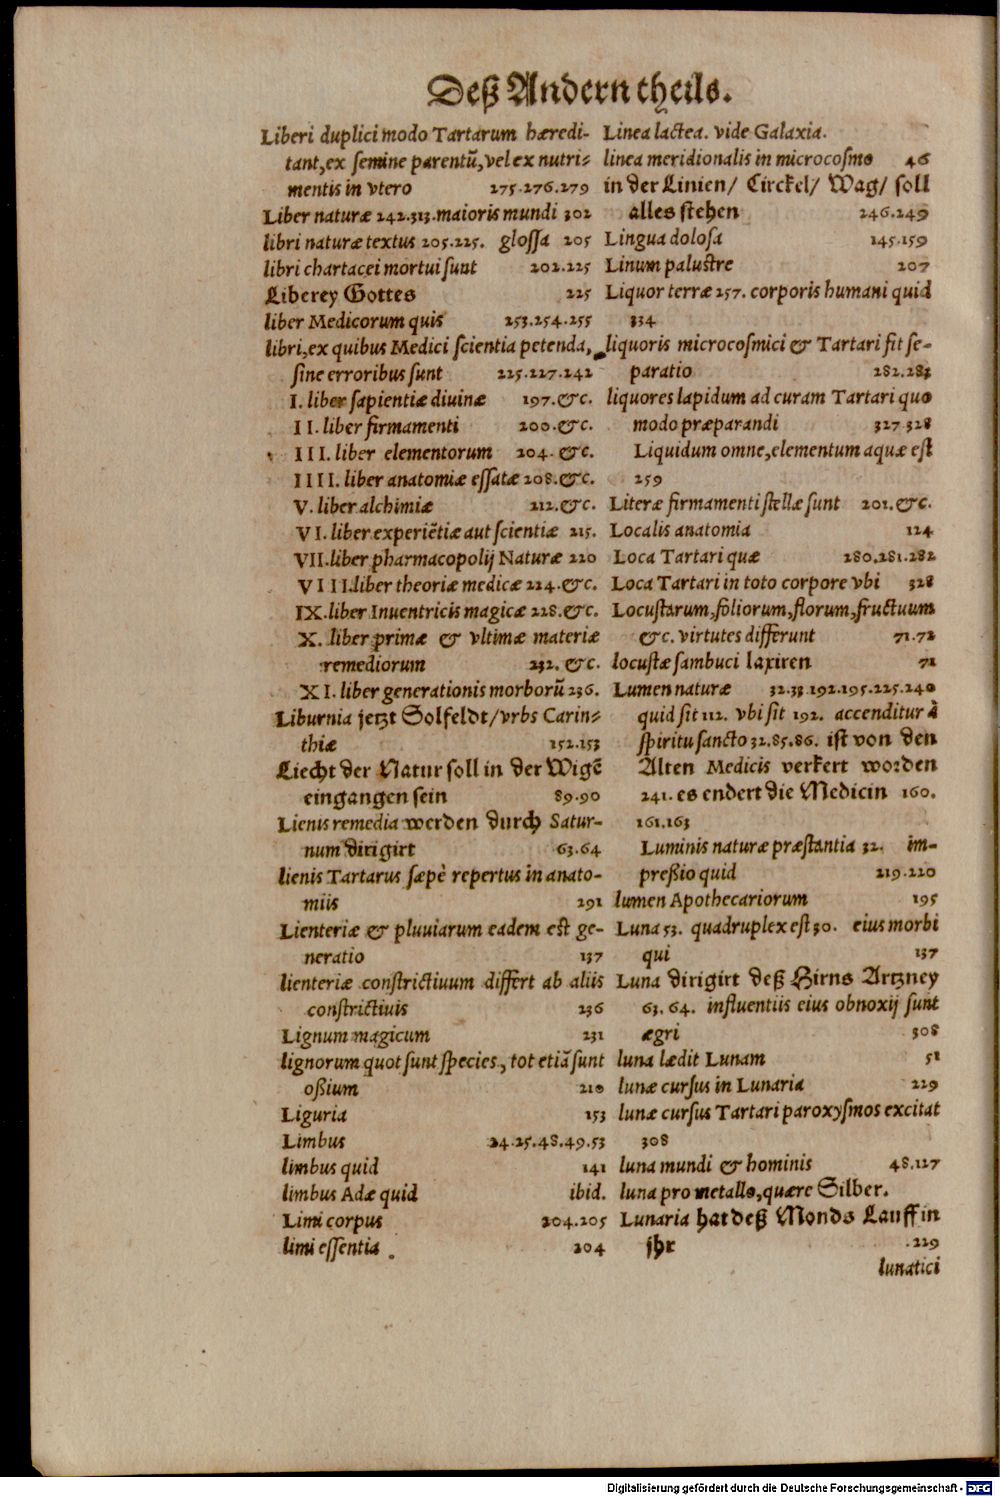 Deß Andern theils.
Liberi duplici modo Tartarum hæredi-
tant, ex semine parentū, vel ex nutri-
mentis in vtero 275.276.279
Liber naturæ 242.313. maioris mundi 302
libri naturæ textus 205.225. glossa 205
libri chartacei mortui sunt 202.225
Liberey Gottes 225
liber Medicorum quis 253.254.255
libri, ex quibus Medici scientia petenda,
sine erroribus sunt 225.227.242
I. liber sapientiæ diuinæ 197.&c.
II. liber firmamenti 200.&c.
III. liber elementorum 204. &c.
IIII. liber anatomiæ essatæ 208.&c.
V. liber alchimiæ 212.&c.
VI. liber experiētiæ aut scientiæ 215.
VII. liber pharmacopolij Naturæ 220
VIII. liber theoriæ medicæ 224.&c.
IX. liber Inuentricis magicæ 228.&c.
X. liber primæ & vltimæ materiæ
remediorum 232. &c.
XI. liber generationis morborū 236.
Liburnia jetzt Solfeldt/ vrbs Carin-
thiæ 152.153
Liecht der Natur soll in der Wigē
eingangen sein 89.90
Lienis remedia werden durch Satur-
num dirigirt 63.64
lienis Tartarus sæpè repertus in anato-
miis 291
Lienteriæ & pluuiarum eadem est ge-
neratio 137
lienteriæ constrictiuum differt ab aliis
constrictiuis 236
Lignum magicum 231
lignorum quot sunt species, tot etiā sunt
oßium 210
Liguria 153
Limbus 24.25.48.49.53
limbus quid 141
limbus Adæ quid ibid.
Limi corpus 204.205
limi essentia 204
Linea lactea. vide Galaxia.
linea meridionalis in microcosmo 46
in der Linien/ Circkel/ Wag/ soll
alles stehen 246.249
Lingua dolosa 145.159
Linum palustre 207
Liquor terræ 257. corporis humani quid
334
liquoris microcosmici & Tartari fit se-
paratio 282.283
liquores lapidum ad curam Tartari quo
modo præparandi 327 328
Liquidum omne, elementum aquæ est
259
Literæ firmamenti stellæ sunt 201.&c.
Localis anatomia 124
Loca Tartari quæ 280.281.282
Loca Tartari in toto corpore vbi 328
Locustarum, foliorum, florum, fructuum
&c. virtutes differunt 71.72
locustæ sambuci laxiren 71
Lumen naturæ 32.33.192.195.225.240
quid sit 112. vbi sit 192. accenditur à
spiritu sancto 32.85.86. ist von den
Alten Medicis verkert worden
241. es endert die Medicin 160.
161.163
Luminis naturæ præstantia 32. im-
preßio quid 219.220
lumen Apothecariorum 195
Luna 53. quadruplex est 30. eius morbi
qui 137
Luna dirigirt deß Hirns Artzney
63. 64. influentiis eius obnoxij sunt
ægri 308
luna lædit Lunam 51
lunæ cursus in Lunaria 229
lunæ cursus Tartari paroxysmos excitat
308
luna mundi & hominis 48.127
luna pro metallo, quære Silber.
Lunaria hat deß Monds Lauff in
jhr .229
lunatici
Digitalisierung gefördert durch die Deutsche Forschungsgemeinschaft - DFG